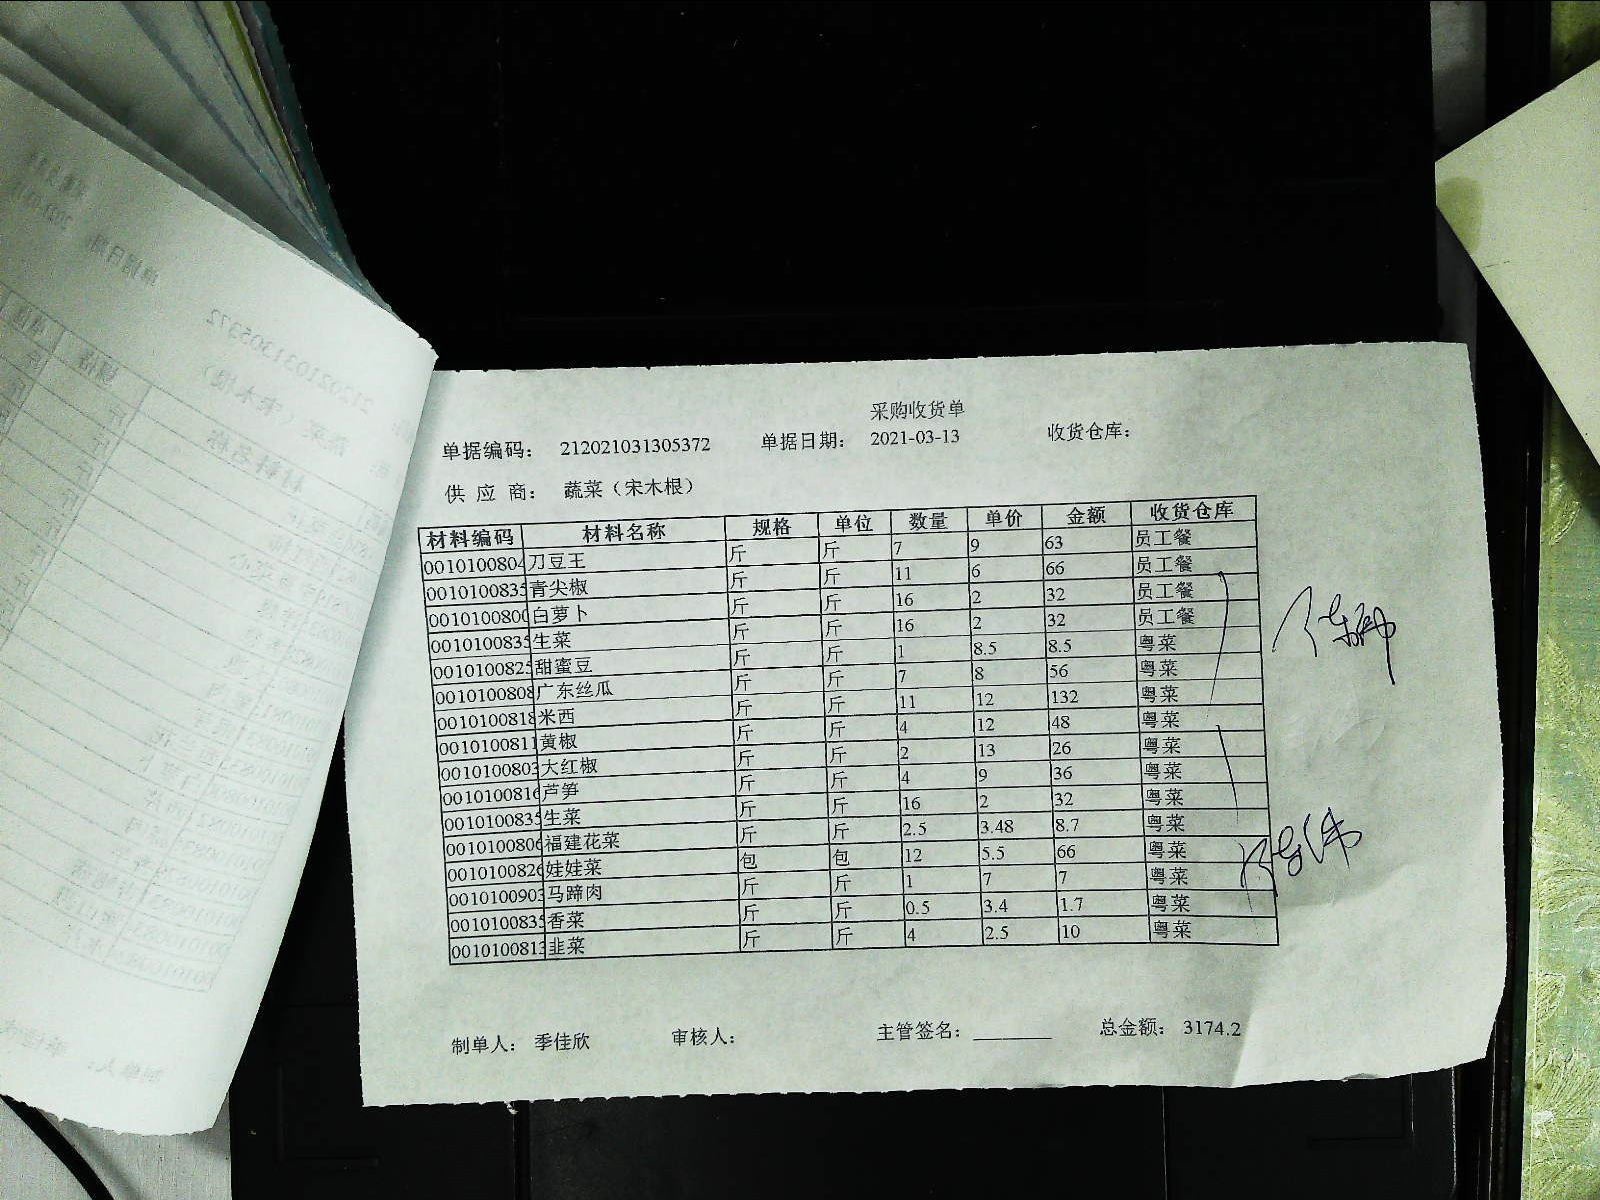 采购收货单
单据编码： 212021031305372 单据日期： 2021-03-13 收货仓库：
供 应 商： 蔬菜（宋木根）
材料编码 材料名称 规格 单位 数量 单价 金额 收货仓库
0010100804 刀豆王 斤 斤 7 9 63 员工餐
0010100835 青尖椒 斤 斤 11 6 66 员工餐
0010100800 白萝卜 斤 斤 16 2 32 员工餐
0010100835 生菜 斤 斤 16 2 32 员工餐
0010100825 甜蜜豆 斤 斤 1 8.5 8.5 粤菜
0010100808 广东丝瓜 斤 斤 7 8 56 粤菜
0010100818 米西 斤 斤 11 12 132 粤菜
0010100811 黄椒 斤 斤 4 12 48 粤菜
0010100803 大红椒 斤 斤 2 13 26 粤菜
0010100816 芦笋 斤 斤 4 9 36 粤菜
0010100835 生菜 斤 斤 16 2 32 粤菜
0010100806 福建花菜 斤 斤 2.5 3.48 8.7 粤菜
0010100826 娃娃菜 包 包 12 5.5 66 粤菜
0010100903 马蹄肉 斤 斤 1 7 7 粤菜
0010100835 香菜 斤 斤 0.5 3.4 1.7 粤菜
0010100813 韭菜 斤 斤 4 2.5 10 粤菜
制单人： 季佳欣 审核人： 主管签名： 总金额： 3174.2